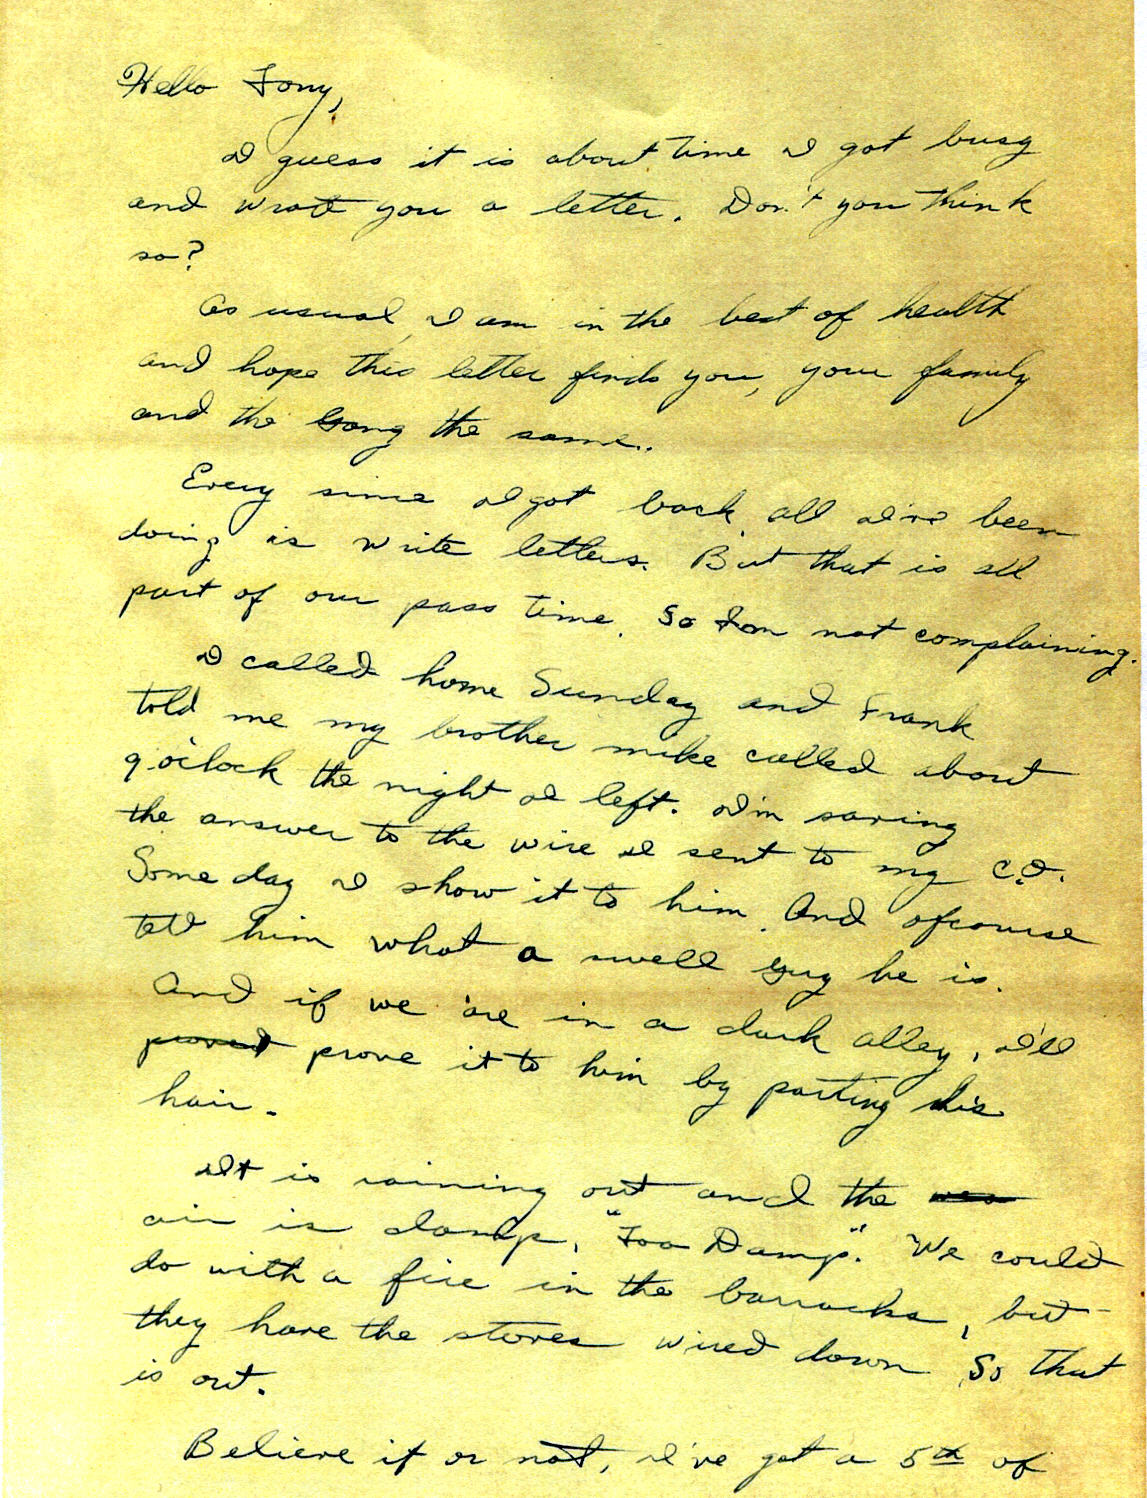 Hello Tony,
I guess it is about time I got busy
and wrote you a letter. Don't you think
so?
As usual, I am in the best of health
and hope this letter finds you, your family
and the Gang the same.
Every since I got back, all I've been
doing is write letters. But that is all
part of our pass time. So I'm not complaining.
I called home Sunday and Frank
told me my brother mike called about
9 o'clock the night I left. I'm saving
the answer to the wire I sent to my C.O.
Some day I show it to him. And ofcourse
tell him what a swell guy he is.
And if we are in a dark alley, I'll
proved prove it to him by parting his
hair.
It is raining out and the
air is damp, "Too Damp". We could
do with a fire in the barracks, but
they have the stoves wired down. So that
is out.
Believe it or not, I've got a 5th of